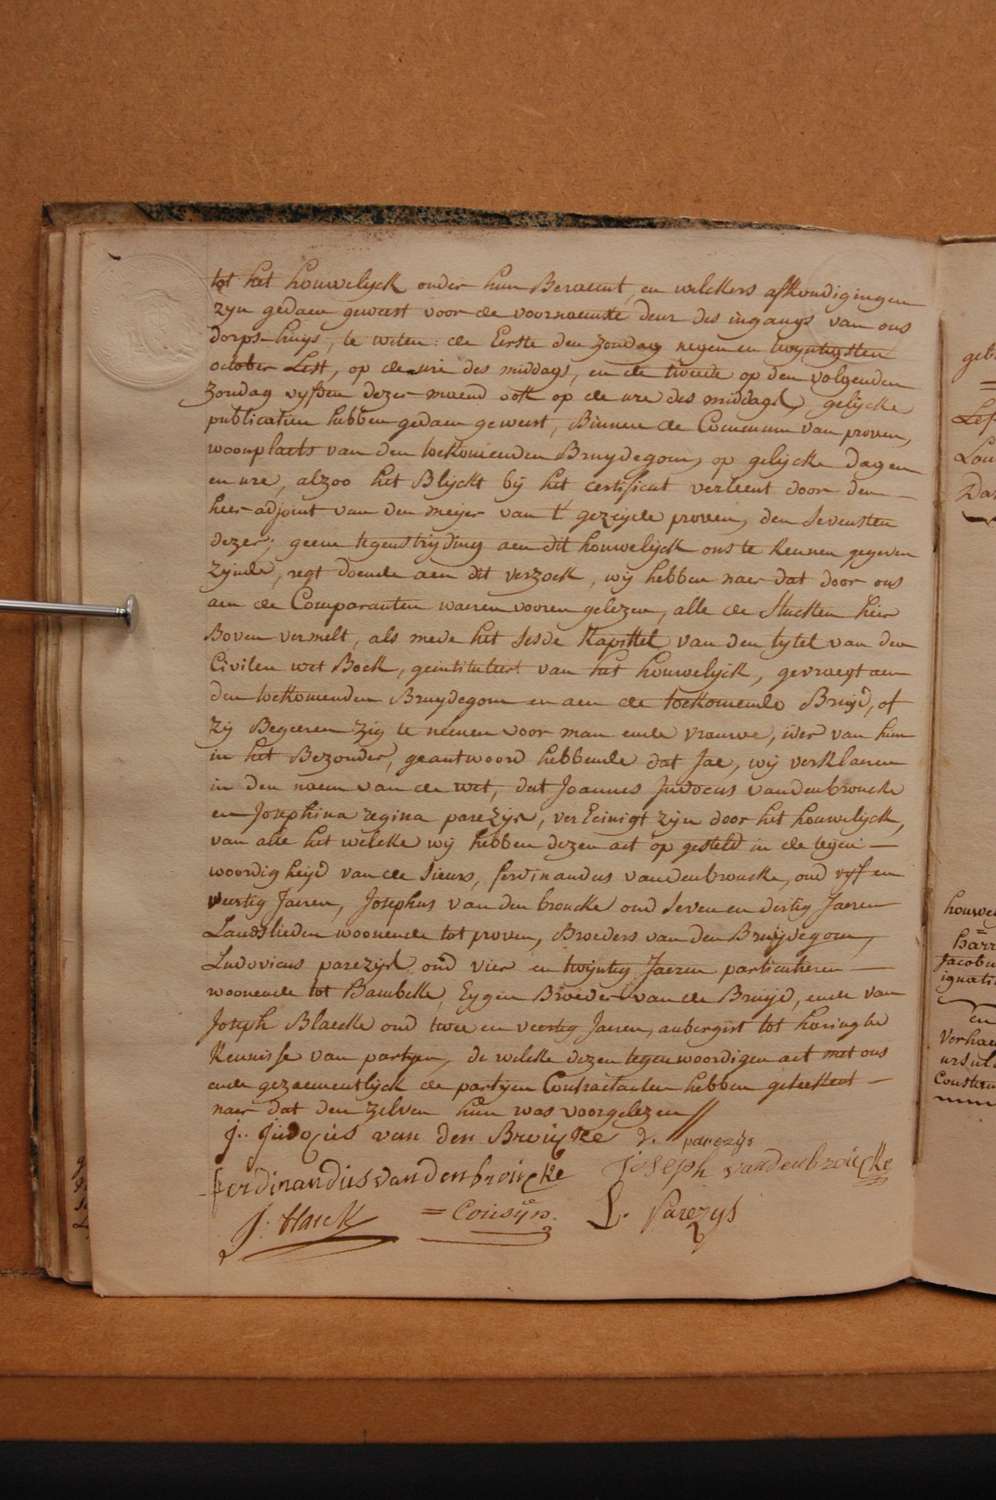 tot het houwelijck onder hun Beraemt, en welckers afkondigingen
zijn gedaen geweest voor de voornaemste deur des ingangs van ons
dorps-huys, te weten: de Eerste den zondag negen en twyntigsten
october Lest, op de ure des middags, en de tweede op den volgenden
zondag vyfden dezer maend ook op de ure des middags, gelijcke
publicatien hebben gedaen geweest, Binnen de Commune van proven,
woonplaets van den toekomenden Bruydegom, op gelijcke dagen
en ure, alzoo het Blijckt bij het certificat verleent door den
heer adjoint van den meyer van t' gezeijde proven, den sevensten
dezer; geene tegenstrijding aen dit houwelijck ons te kennen gegeven
zijnde, regt doende aen dit verzoek, wij hebben naer dat door ons
aen de Comparanten waeren vooren gelezen, alle de Stucken hier
Boven vermelt, als mede het sesde Kapittel van den tytel van den
Civilen wet Boek, geintituleert van het houwelijck, gevraegt aen
den toekomenden Bruydegom en aen de toekomende Bruyd, of
zij Begeeren zig te nemen voor man ende vrauwe, ider van hun
in het Bezonder, geantwoord hebbende dat Jae, wij verklaeren
in den naem van de wet, dat Joannes Judocus vandenbroucke
en Josephina regina parezijs, verEenigt zijn door het houwelijck,
van alle het welcke wij hebben dezen act op gesteld in de tegen
woordigheijd van de Sieurs, ferdinandus vandenbroucke, oud vijf en
veertig Jaeren, Josephus van den broucke oud seven en dertig Jaeren
Landslieden woonende tot proven, Broeders van den Bruydegom,
Ludovicus parezijs oud vier en twyntig Jaeren particulieren
woonende tot Bambeke, Eygen Broeder van de Bruyd, ende van
Joseph Blaecke oud twee en veertig Jaeren, aubergist tot haringhe
Kennisse van partijen, de welcke dezen tegenwoordigen act met ons
ende gezaementlijck de partijen Contractanten hebben geteekent
naer dat den zelven hun was voorgelezen //
J.. Judocus van den Broucke parezijs
ferdinandus vandenbroucke Joseph vandenbroucke
= Cousijn. L. Parezys
geb
=
houwe
=
Jacobu
ignati
en
Verhae
ursul